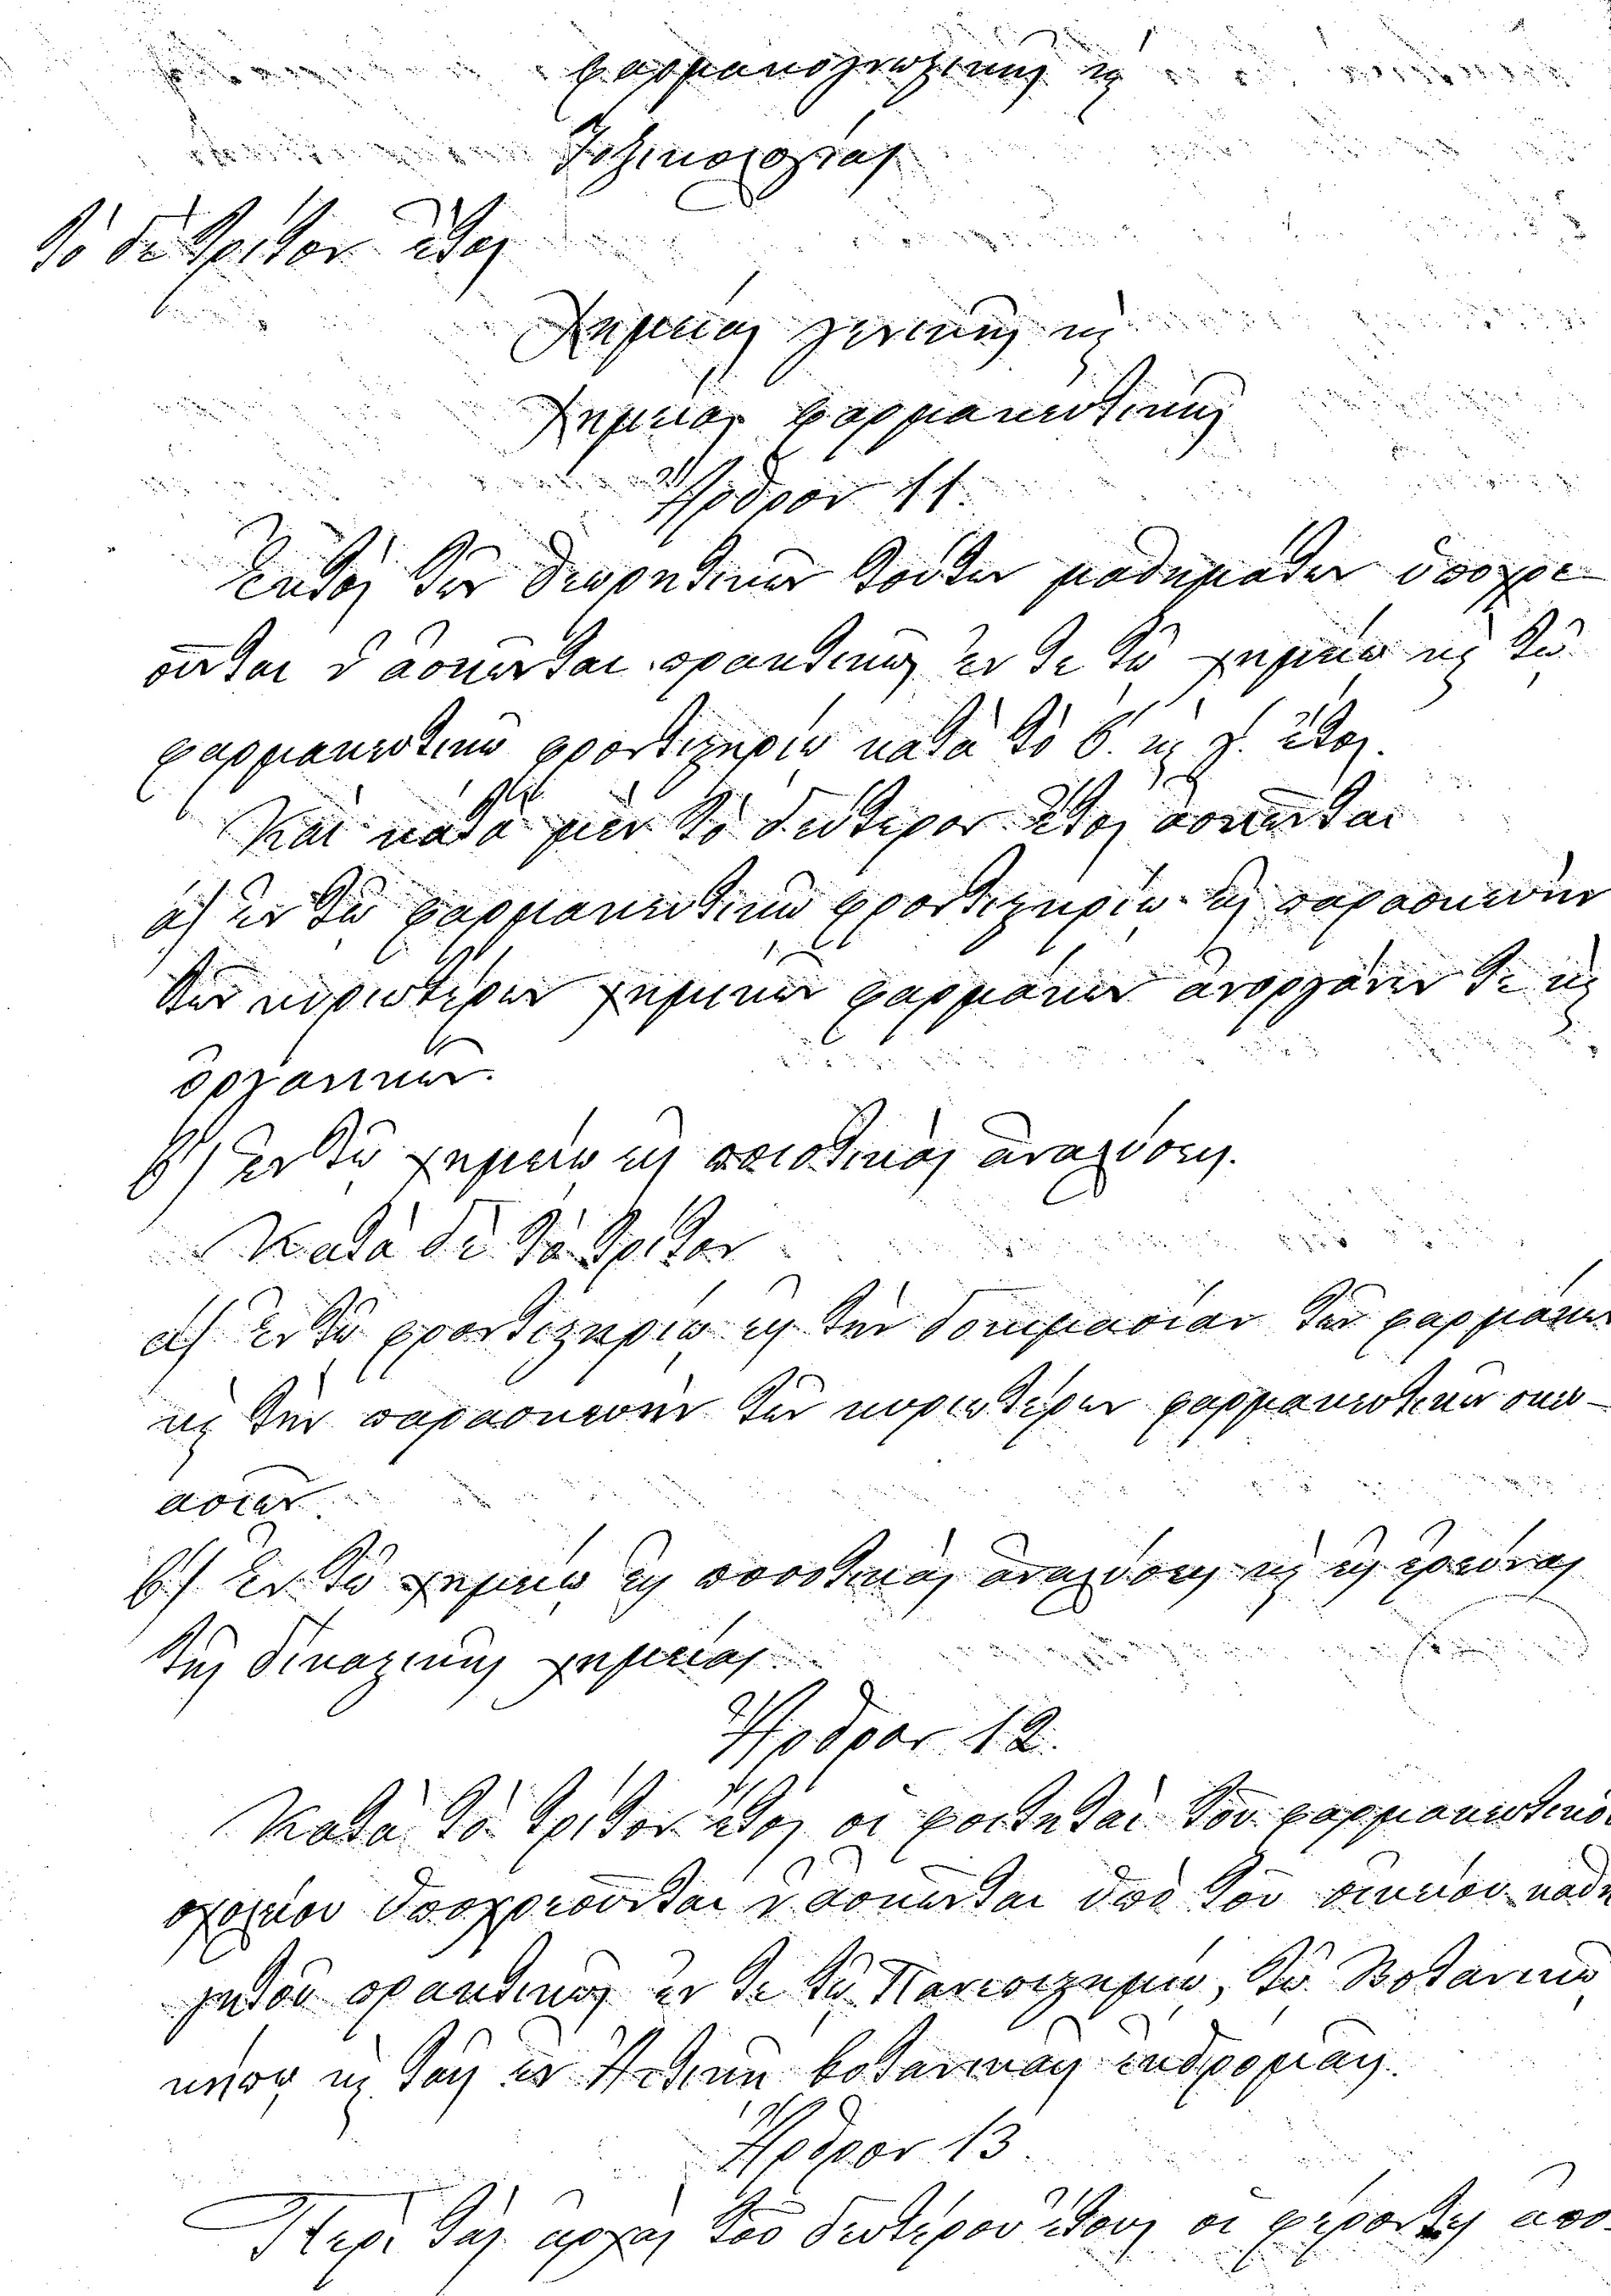 Φαρμακογνωσίας καὶ
Τοξικολογίας
Τὸ δὲ τρίτον ἔτος
Χημείας γενικῆς καὶ
Χημείας φαρμακευτικῆς
Ἄρθρον 11.
Ἐκτὸς τῶν θεωρητικῶν τούτων μαθημάτων ὑποχρε-
οῦνται ν' ἀσκῶνται πρακτικῶς ἔν τε τῷ χημείῳ καὶ τῷ
φαρμακευτικῷ φροντιστηρίῳ κατὰ τὸ β. καὶ γ. ἔτος.
Καὶ κατὰ μὲν τὸ δεύτερον ἔτος ἀσκοῦνται
α) ἐν τῷ φαρμακευτικῷ φροντιστηρίῳ εἰς παρασκευὴν
τῶν κυριωτέρων χημικῶν φαρμάκων ἀνοργάνων τε καὶ
ὀργανικῶν.
β) ἐν τῷ χημείῳ εἰς ποιοτικὰς ἀναλύσεις.
Κατὰ δὲ τὸ τρίτον
α) ἐν τῷ φροντιστηρίῳ εἰς τὴν δοκιμασίαν τῶν φαρμάκων
καὶ τὴν παρασκευὴν τῶν κυριωτέρων φαρμακευτικῶν σκευ-
ασιῶν
β) ἐν τῷ χημείῳ εἰς ποσοτικὰς ἀναλύσεις καὶ εἰς ἐρεύνας
τῆς δικανικῆς χημείας.
Ἄρθρον 12.
Κατὰ τὸ τρίτον ἔτος οἱ φοιτηταὶ τοῦ φαρμακευτικοῦ
σχολείου ὑποχρεοῦνται ν' ἀσκῶνται ὑπὸ τοῦ οἰκείου καθη-
γητοῦ πρακτικῶς ἔν τε τῷ Πανεπιστημίῳ, τῷ Βοτανικῷ
κήπῳ καὶ ταῖς ἐν Ἀττικῇ βοτανικαῖς ἐκδρομαῖς.
Ἄρθρον 13.
Περὶ τὰς ἀρχὰς τοῦ δευτέρου ἔτους οἱ φέροντες ἀπο-